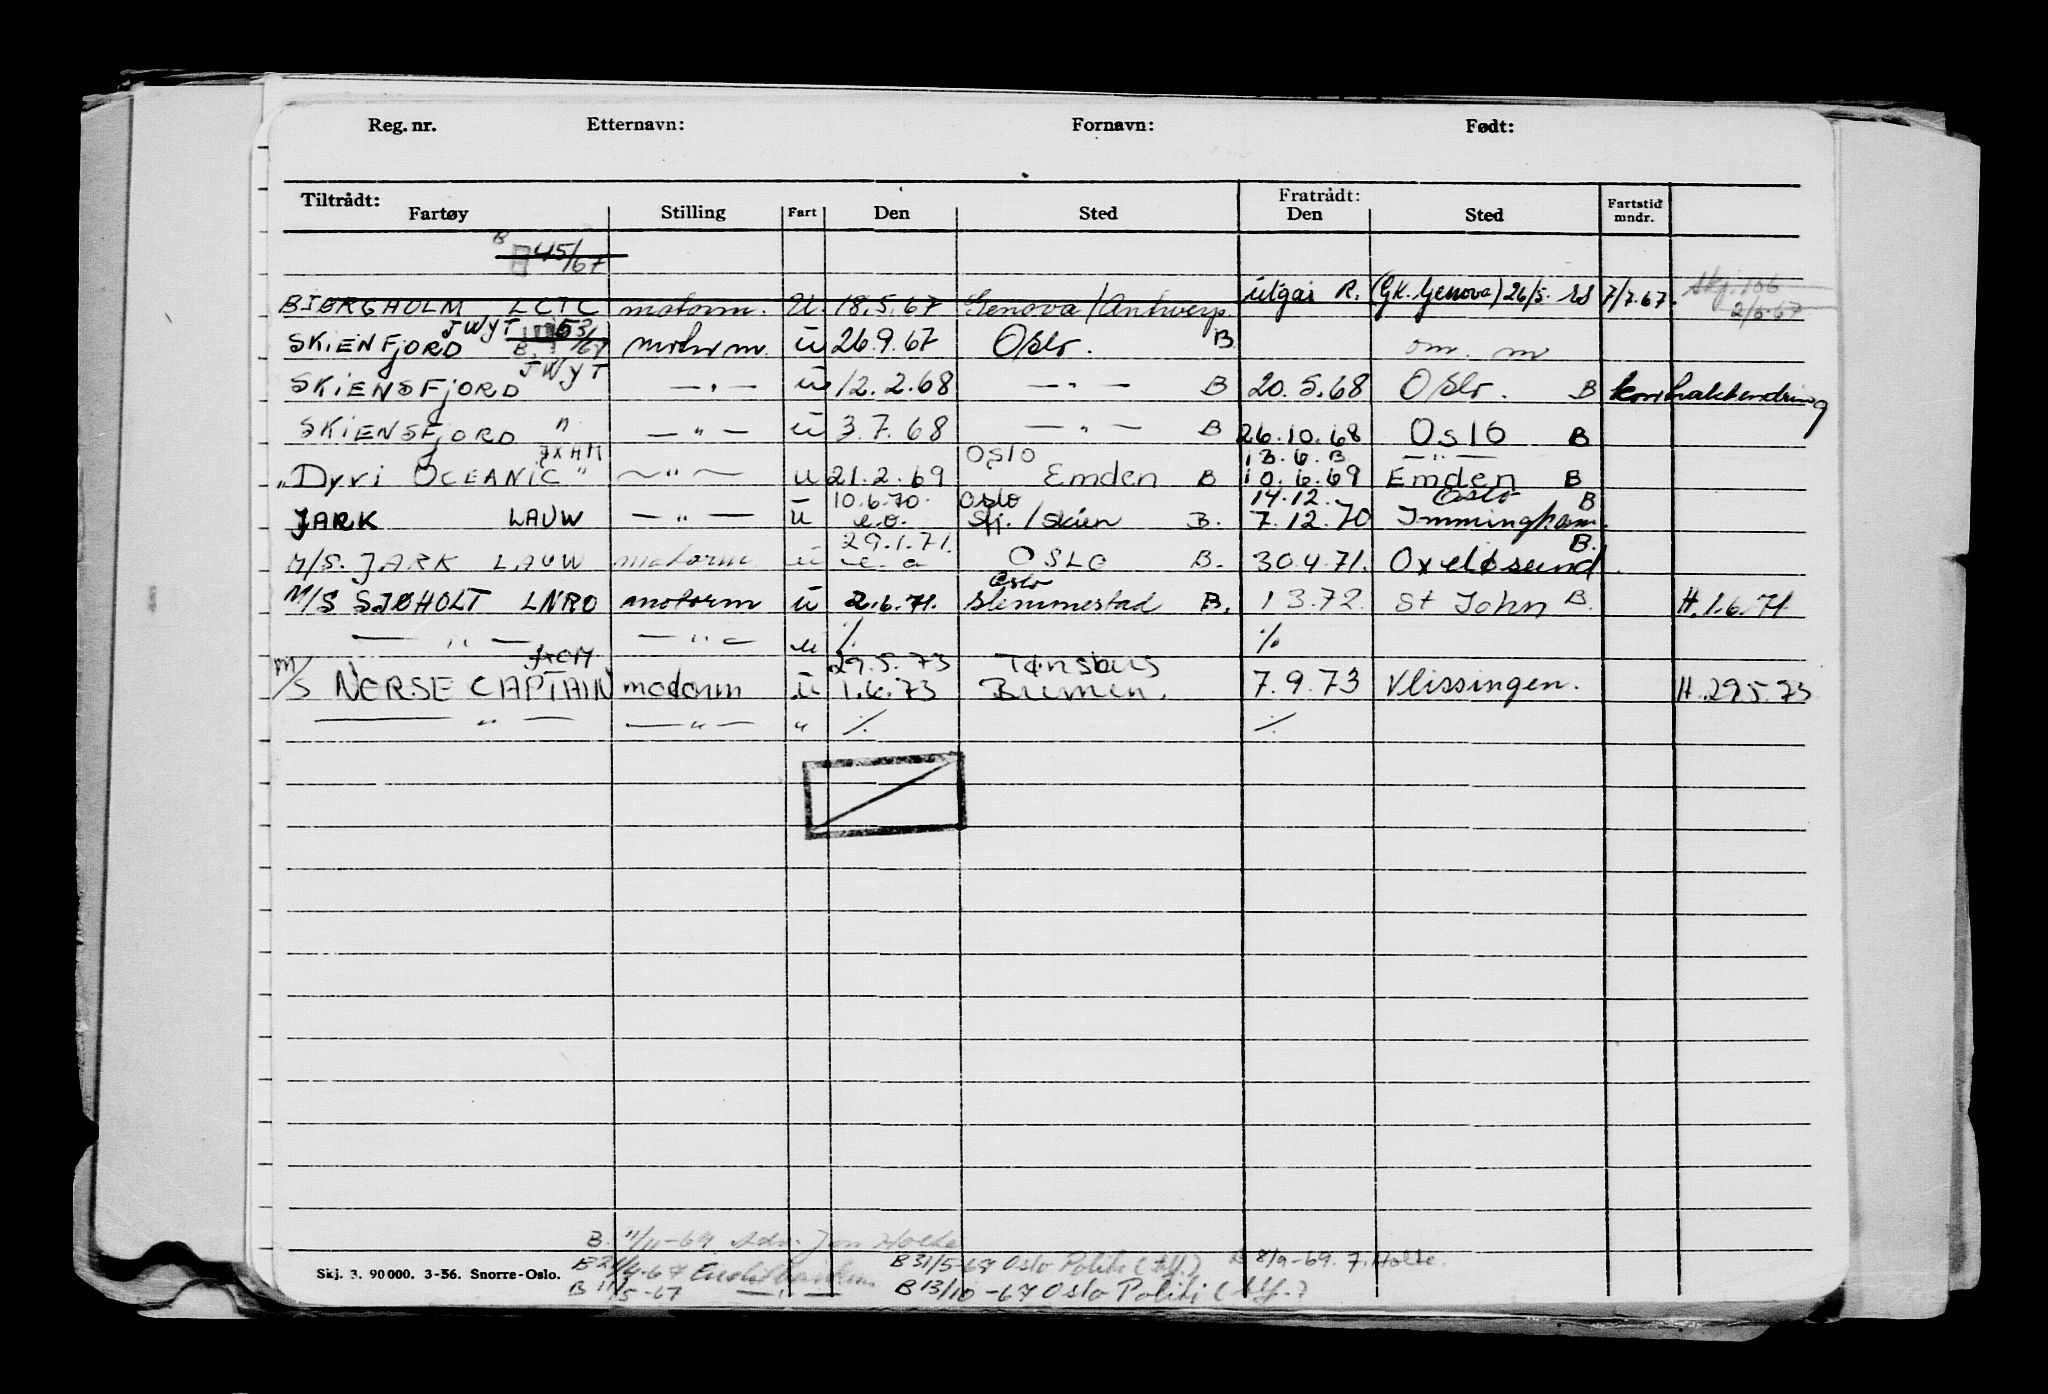 Reg. nr. Etternavn: Fornavn: Født:
Tiltrådt: Fratrådt:
Fartøy Stilling Fart Den Sted Den Sted Fartstid mndr.
B 45/67
BJØRGHOLM LCTC motorm. U. 18.5.67 Genova/Antwerp. utgår R. (GK. Genova) 26/5. 7/7.67. Skj. 106 2/6-67
JWYT 53/67
SKIENFJORD B. motorm. u 26.9.67 Oslo. B om. m
JWYT
SKIENSFJORD —"— u 12.2.68 —"— B 20.5.68 Oslo. B kontraktendring
SKIENSFJORD " —"— u 3.7.68 —"— B 26.10.68 Oslo B
JXHM Oslo 13.6.B —"—
"Dyvi OCEANIC" —"— u 21.2.69 Emden B 10.6.69 Emden B
10.6.70. Oslo 14.12. Oslo B
JARK LAUW —"— u e.o. Sj./skien B. 7.12.70 Immingham.
29.1.71. B.
M/S. JARK LAUW motorm u e.o OSLO B. 30.4.71. Oxeløsund.
Oslo
M/S SJØHOLT LNRO motorm u 2.6.71. Slemmestad B. 1 3.72. St John B. H. 1.6.71
—"— —"— u % %
29.5.73 Tønsberg
m/s NORSE CAPTAIN motorm u 1.6.73 Bremen. 7.9.73 Vlissingen. H. 29.5.73
—"— —"— " % %
B. 11/11-69 Adv. Jon Holte
B 31/5-67 Oslo Politi ( ) 8/9-69. J. Holte.
Skj. 3. 90 000. 3-56. Snorre-Oslo.
B 11/5-67 —"— B 13/10-67 Oslo Politi ( )